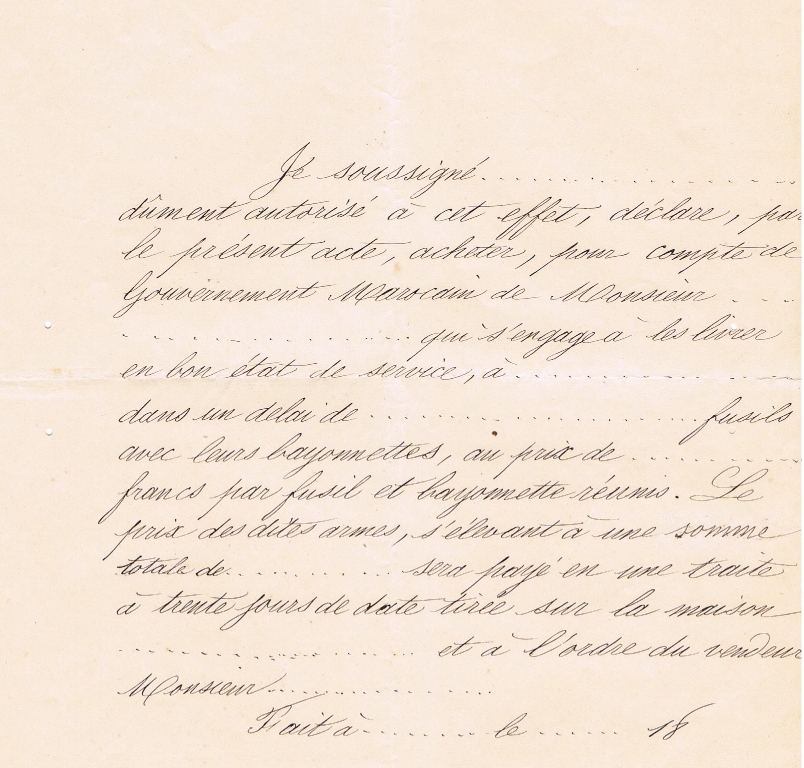 Je soussigné...............
dûment autorisé à cet effet, déclare, par
le présent acte, acheter, pour compte de
Gouvernement Marocain de Monsieur ....
.................... qui s'engage à les livrer
en bon état de service, à ....................
dans un delai de .................... fusils
avec leurs bayonnettes, au prix de ..............
francs par fusil et bayonnette réunis. Le
prix des dites armes, s'élevant à une somme
totale de.............. sera payé en une traite
à trente jours de date tirée sur la maison
.................... et à l'ordre du vendeur
Monsieur....................
Fait à .......... le ........ 18